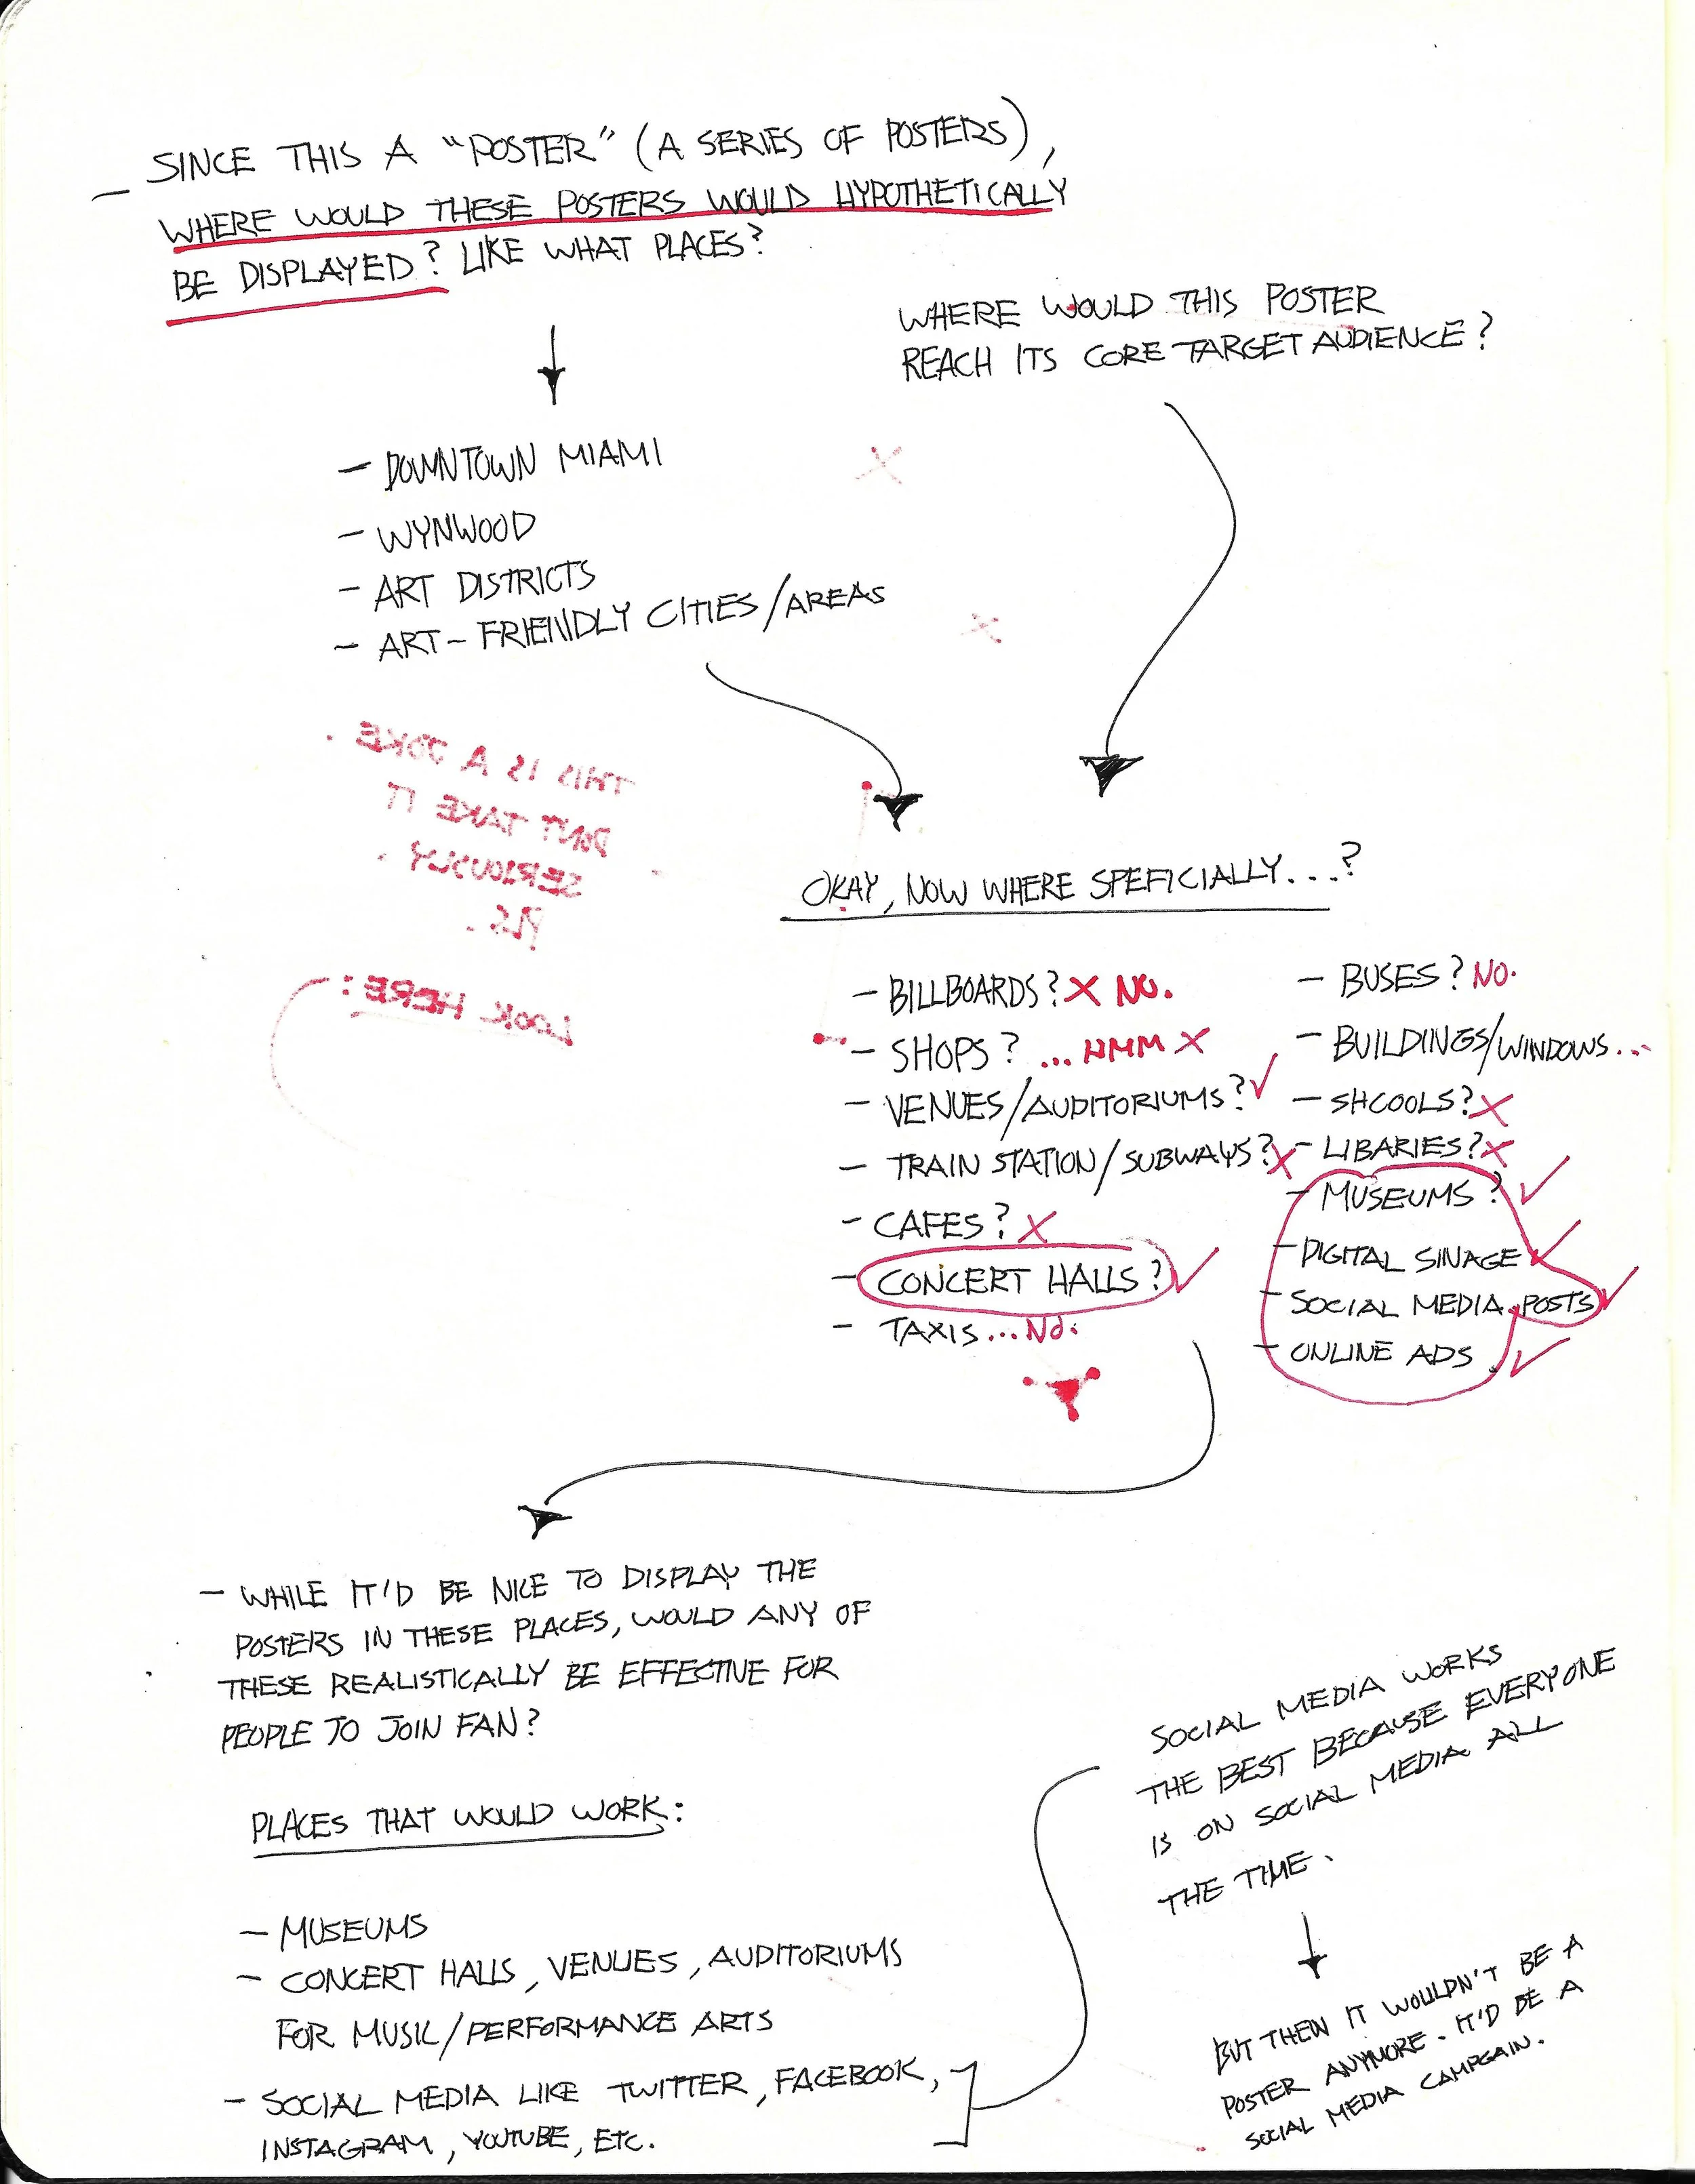 — SINCE THIS A "POSTER" (A SERIES OF POSTERS),
WHERE WOULD THESE POSTERS WOULD HYPOTHETICALLY
BE DISPLAYED? LIKE WHAT PLACES?
WHERE WOULD THIS POSTER
REACH ITS CORE TARGET AUDIENCE?
— DOWNTOWN MIAMI
— WYNWOOD
— ART DISTRICTS
— ART-FRIENDLY CITIES/AREAS
THIS IS A JOKE.
DON'T TAKE IT
SERIOUSLY.
PLS.
LOOK HERE:
OKAY, NOW WHERE SPEFICIALLY...?
— BILLBOARDS? X NO.
— SHOPS? ... HMM X
— VENUES/AUDITORIUMS? ✓
— TRAIN STATION/SUBWAYS? X
— CAFES? X
— CONCERT HALLS? ✓
— TAXIS... NO.
— BUSES? NO.
— BUILDINGS/WINDOWS...
— SHCOOLS? X
— LIBARIES? X
— MUSEUMS? ✓
— DIGITAL SINAGE ✓
— SOCIAL MEDIA POSTS ✓
— ONLINE ADS ✓
— WHILE IT'D BE NICE TO DISPLAY THE
POSTERS IN THESE PLACES, WOULD ANY OF
THESE REALISTICALLY BE EFFECTIVE FOR
PEOPLE TO JOIN FAN?
PLACES THAT WOULD WORK:
— MUSEUMS
— CONCERT HALLS, VENUES, AUDITORIUMS
FOR MUSIC/PERFORMANCE ARTS
— SOCIAL MEDIA LIKE TWITTER, FACEBOOK,
INSTAGRAM, YOUTUBE, ETC.
SOCIAL MEDIA WORKS
THE BEST BECAUSE EVERYONE
IS ON SOCIAL MEDIA ALL
THE TIME.
BUT THEN IT WOULDN'T BE A
POSTER ANYMORE. IT'D BE A
SOCIAL MEDIA CAMPGAIN.